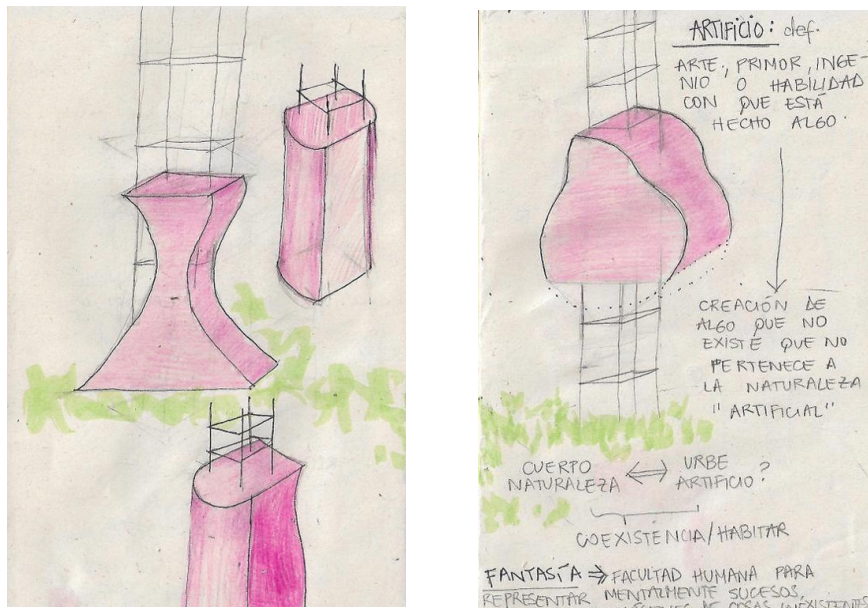 ARTIFICIO: def.
ARTE, PRIMOR, INGE-
NIO O HABILIDAD
CON QUE ESTÁ
HECHO ALGO.
CREACIÓN DE
ALGO QUE NO
EXISTE QUE NO
PERTENECE A
LA NATURALEZA
"ARTIFICIAL"
CUERPO ⟺ URBE
NATURALEZA ARTIFICIO?
COEXISTENCIA/HABITAR
FANTASÍA ⇒ FACULTAD HUMANA PARA
REPRESENTAR MENTALMENTE SUCESOS,